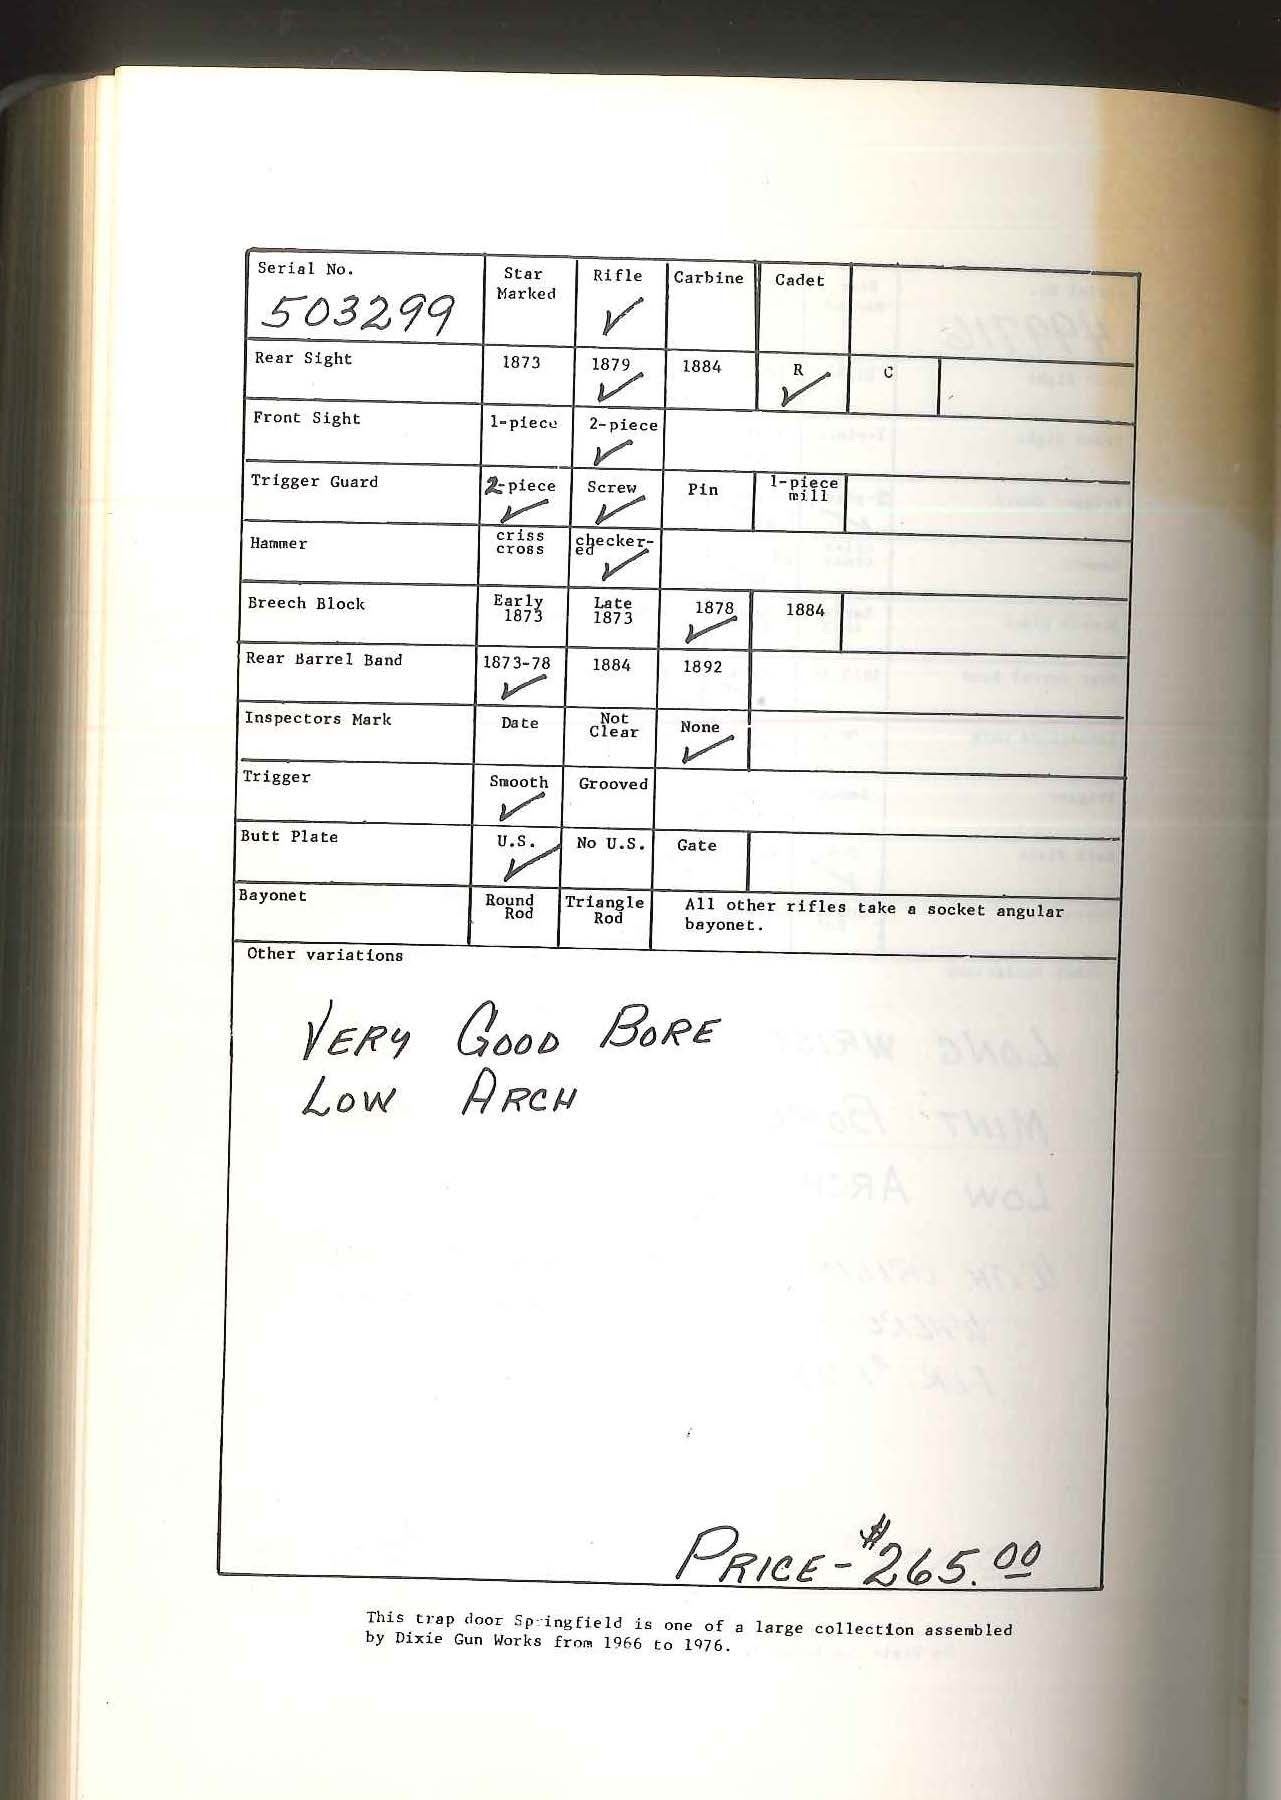 Serial No. Star Marked Rifle Carbine Cadet
503299 ✓
Rear Sight 1873 1879 ✓ 1884 R ✓ C
Front Sight 1-piece 2-piece ✓
Trigger Guard 2-piece ✓ Screw ✓ Pin 1-piece mill
Hammer criss cross checker-ed ✓
Breech Block Early 1873 Late 1873 1878 ✓ 1884
Rear Barrel Band 1873-78 ✓ 1884 1892
Inspectors Mark Date Not Clear None ✓
Trigger Smooth ✓ Grooved
Butt Plate U.S. ✓ No U.S. Gate
Bayonet Round Rod Triangle Rod All other rifles take a socket angular
bayonet.
Other variations
VERY GOOD BORE
LOW ARCH
PRICE - $265.00
This trap door Springfield is one of a large collection assembled
by Dixie Gun Works from 1966 to 1976.